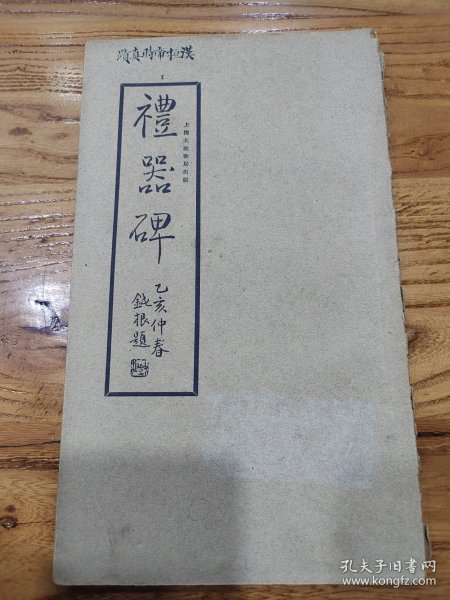 漢桓帝時真蹟
I
禮器碑
上海大眾書局出版
乙亥仲春
鈍根題
孔夫子旧书网
www.kongfz.com